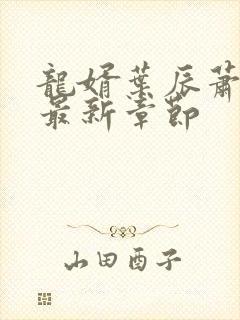 龍婿葉辰蕭
最新章節
山田酉子